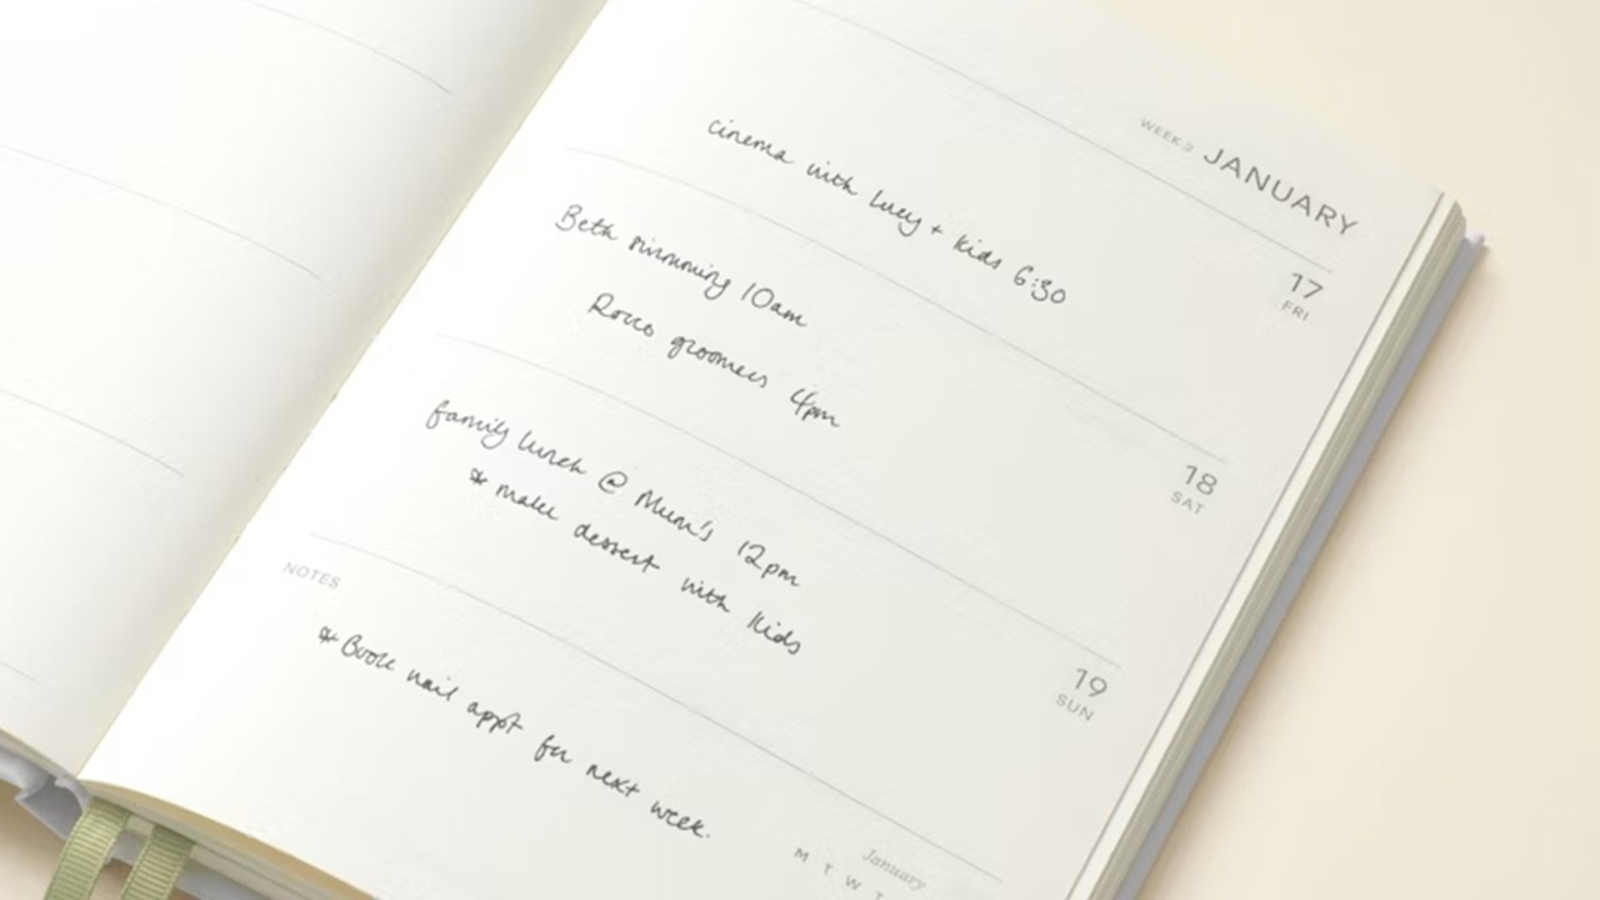 WEEK 3 JANUARY
17
FRI
cinema with Lucy + kids 6:30
18
SAT
Beth swimming 10am
Rocco groomers 4pm
19
SUN
family lunch @ Mum's 12pm
* make dessert with kids
NOTES
* Book nail appt for next week.
January
M T W T